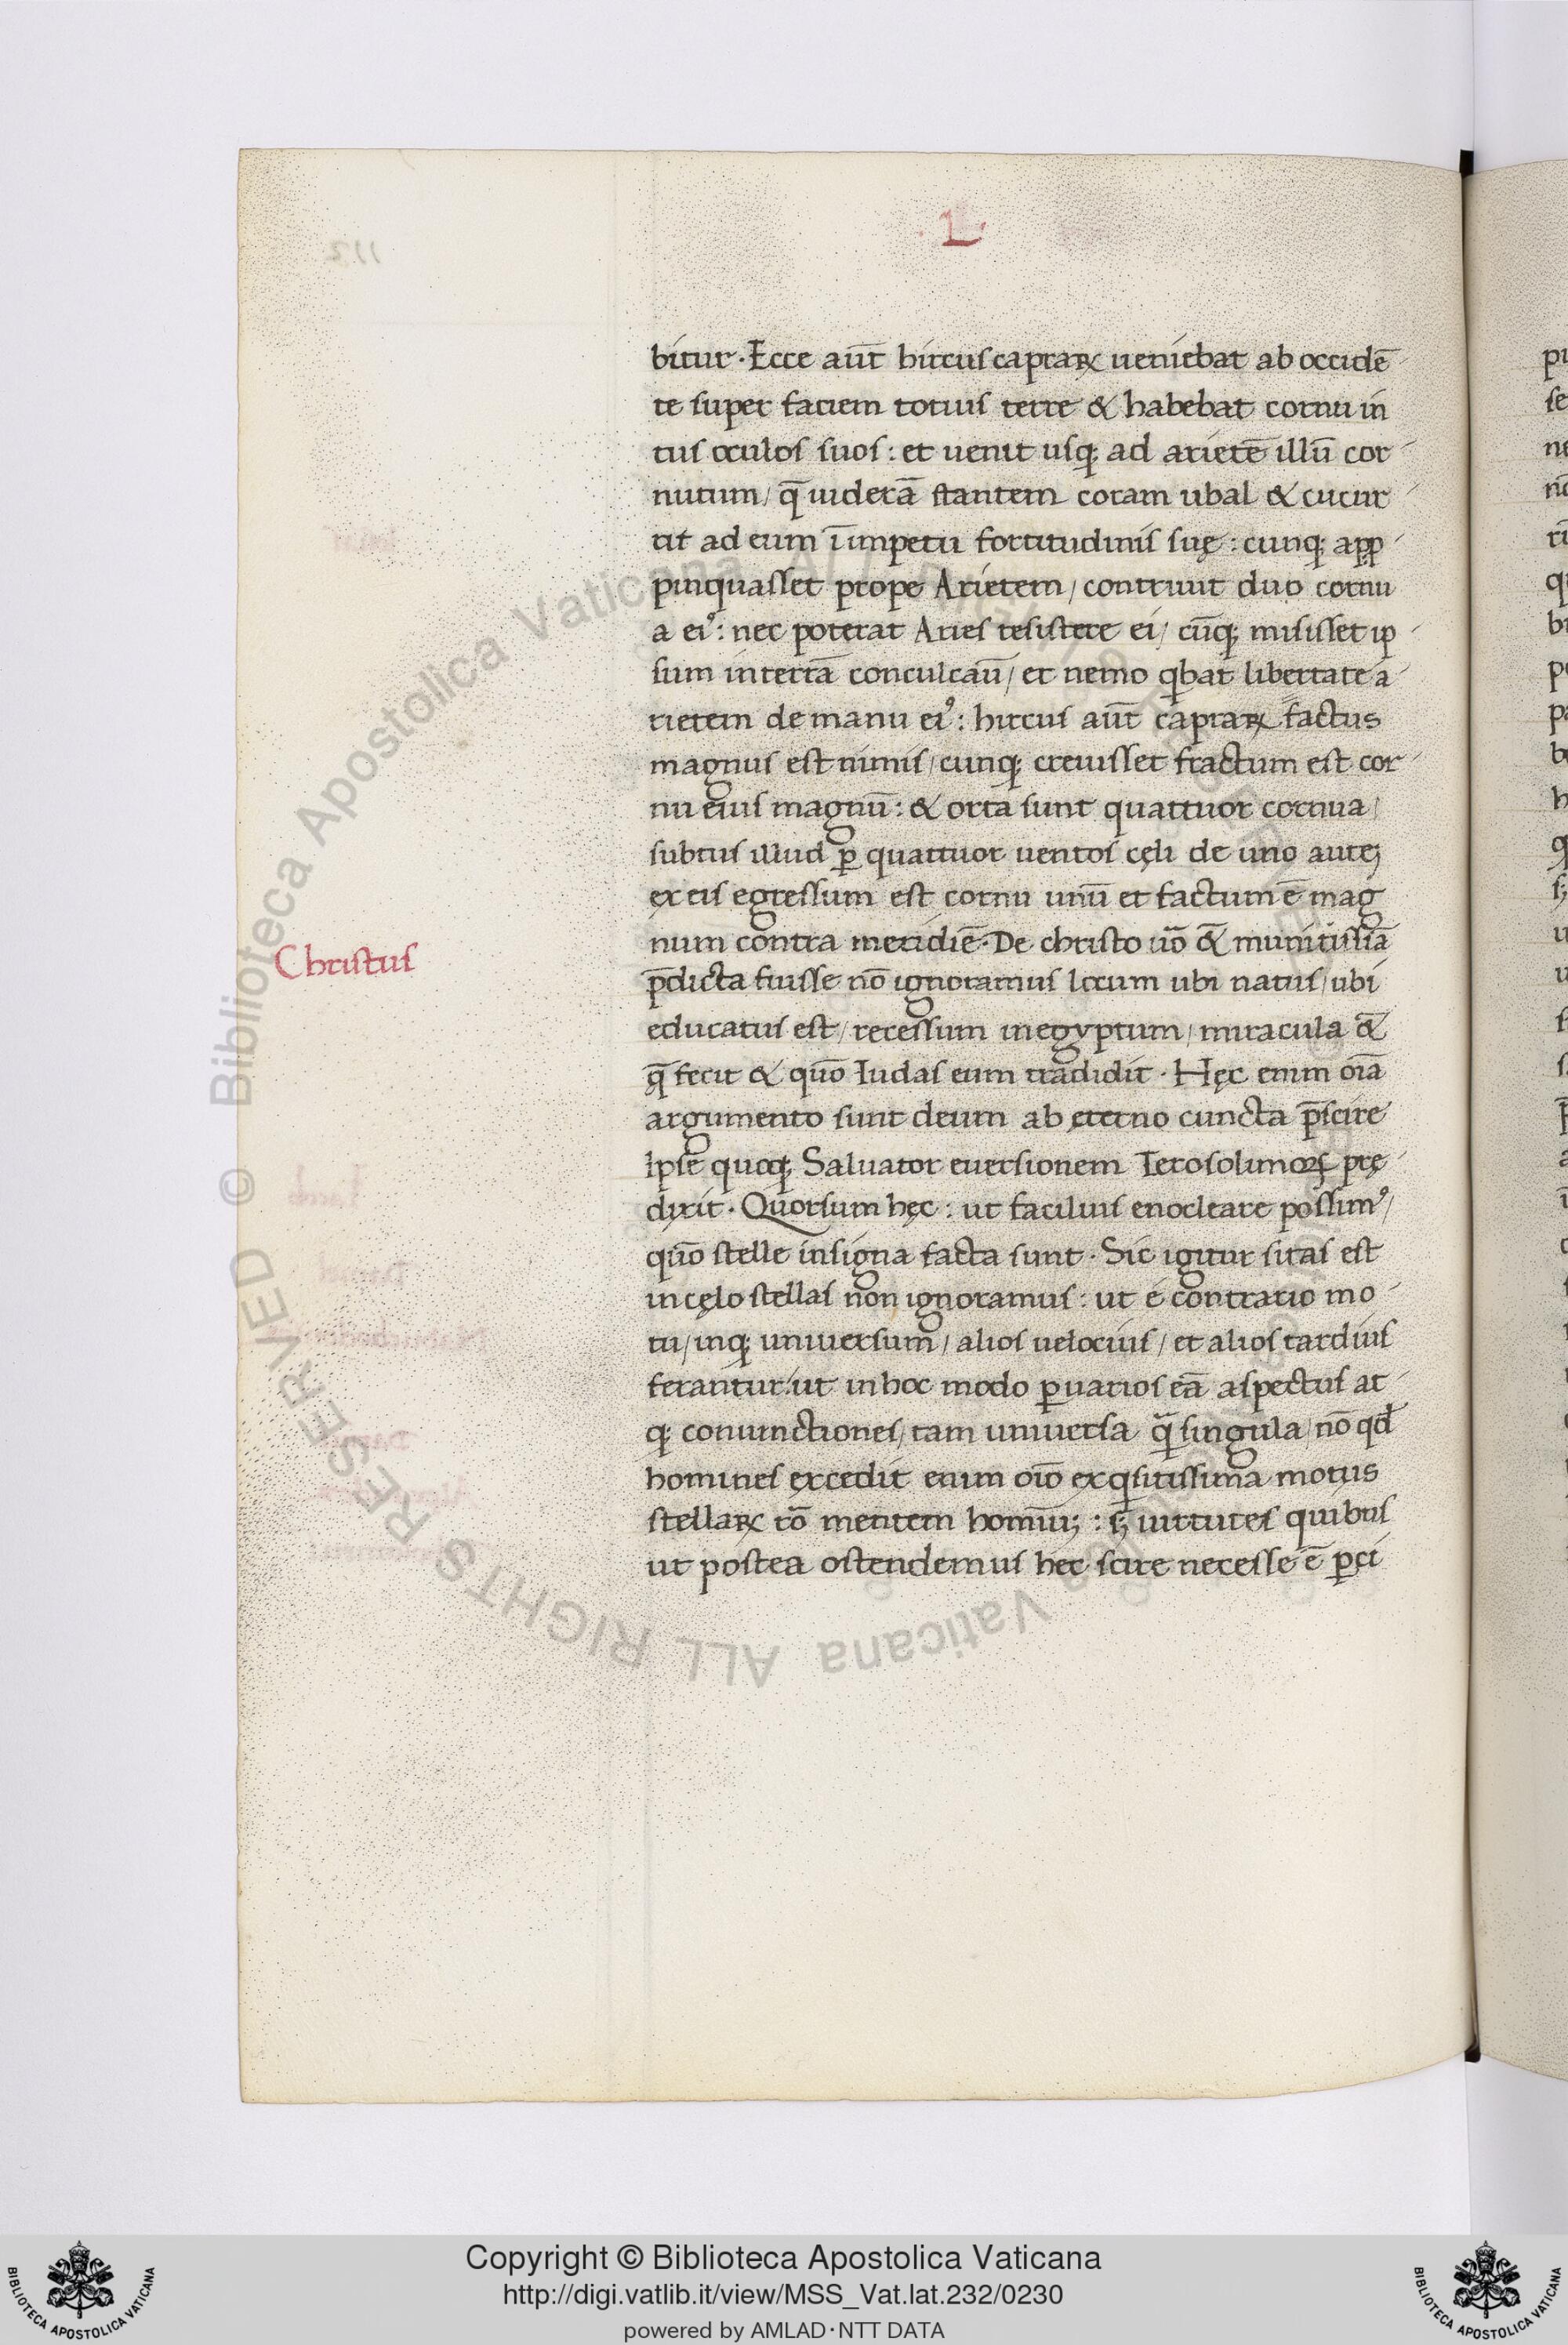 ·L·
bitur · Ecce aūt hircus capraꝝ ueniebat ab occidē
te super faciem totius terre & habebat cornu in
tus oculos suos : et uenit usq; ad arietē illū cor
nutum / q̄ uiderā stantem coram ubal & cucur
rit ad eum ī impetu fortitudinis suę : cunq; apꝓ
pinquasset prope Arietem / contriuit duo cornu
a eiꝰ : nec poterat Aries resistere ei / cūq; misisset ip
sum in terrā conculcaū / et nemo qbat libertate a
rietem de manu eiꝰ : hircus aūt capraꝝ factus
magnus est nimis / cunq; creuisset fractum est cor
nu eius magnū : & orta sunt quattuor cornua /
subtus illud ꝑ quattuor uentos cęli de uno autej
ex eis egressum est cornu unū et factum ē mag
num contra meridiē · De christo uō &̄ munitissīa
p̄dicta fuisse nō ignoramus locum ubi natus / ubi
educatus est / recessum in egyptum / miracula &̄
q̄ fecit & quō Iudas eum tradidit · Hęc enim oīa
argumento sunt deum ab ęterno cuncta p̄scire
Ipse quoq; Saluator euersionem Ierosolimoꝝ prę
dixit · Quorsum hęc : ut facilius enocleare possimꝰ /
quō stelle in signa facta sunt · Sic igitur sitas est
in cęlo stellas non ignoramus : ut e contrario mo
tu / inq; uniuersum / alios uelocius / et alios tardius
ferantur : ut in hoc modo ꝑ uarios eā aspectus at
q; coniunctiones / tam uniuersa q̄ singula / nō qđ
homines excedit enim oīo exqsitissima motus
stellaꝝ rō mentem homīū; : s; uirtutes quibus
ut postea ostendemus hec scire necesse ē ꝑci
Christus
112
Copyright © Biblioteca Apostolica Vaticana
http://digi.vatlib.it/view/MSS_Vat.lat.232/0230
powered by AMLAD·NTT DATA
BIBLIOTECA APOSTOLICA VATICANA
BIBLIOTECA APOSTOLICA VATICANA
© Biblioteca Apostolica Vaticana ALL RIGHTS RESERVED